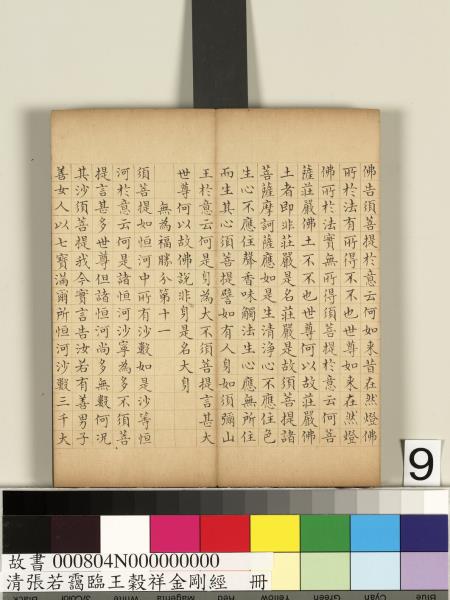 佛告須菩提於意云何如来昔在然燈佛
所於法有所得不不也世尊如来在然燈
佛所於法實無所得須菩提於意云何菩
薩莊嚴佛土不不也世尊何以故莊嚴佛
土者即非莊嚴是名莊嚴是故須菩提諸
菩薩摩訶薩應如是生清淨心不應住色
生心不應住聲香味觸法生心應無所住
而生其心須菩提譬如有人身如須彌山
王於意云何是身為大不須菩提言甚大
世尊何以故佛說非身是名大身
無為福勝分第十一
須菩提如恒河中所有沙數如是沙等恒
河於意云何是諸恒河沙寧為多不須菩
提言甚多世尊但諸恒河尚多無數何况
其沙須菩提我今實言告汝若有善男子
善女人以七寶滿爾所恒河沙數三千大
9
故書 000804N000000000
清張若靄臨王穀祥金剛經 冊
Black
3/Color
White
Magenta
Red
Yellow
Green
Cyan
Blue